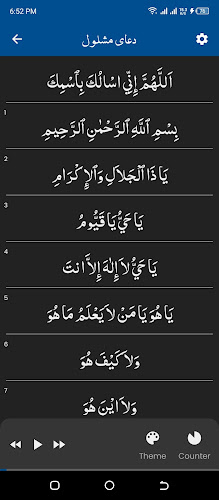 6:52 PM
دعای مشلول
اَللّٰهُمَّ اِنِّیْ اَسْاَلُكَ بِاسْمِكَ
1
بِسْمِ اللّٰهِ الرَّحْمٰنِ الرَّحِيْمِ
2
يَا ذَا الْجَلَالِ وَالْاِكْرَامِ
3
يَا حَيُّ يَا قَيُّوْمُ
4
يَا حَيُّ لَا اِلٰهَ اِلَّا اَنْتَ
5
يَا هُوَ يَا مَنْ لَا يَعْلَمُ مَا هُوَ
6
وَلَا كَيْفَ هُوَ
7
وَلَا اَيْنَ هُوَ
Theme Counter